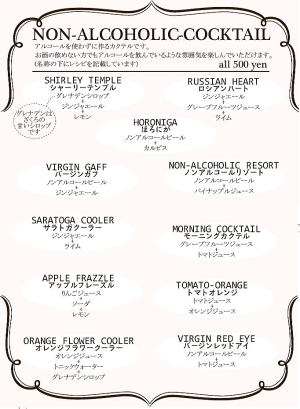 NON-ALCOHOLIC-COCKTAIL
アルコールを使わずに作るカクテルです。
お酒の飲めない方でもアルコールを飲んでいるような雰囲気を楽しんでいただけます。
(名称の下にレシピを記載しています)
all 500 yen
SHIRLEY TEMPLE
シャーリーテンプル
グレナデンシロップ
+
ジンジャエール
+
レモン
グレナデンは
ざくろの
甘いシロップ
です
RUSSIAN HEART
ロシアンハート
ジンジャエール
+
グレープフルーツジュース
+
ライム
HORONIGA
ほろにが
ノンアルコールビール
+
カルピス
VIRGIN GAFF
バージンガフ
ノンアルコールビール
+
ジンジャエール
NON-ALCOHOLIC RESORT
ノンアルコールリゾート
ノンアルコールビール
+
パイナップルジュース
SARATOGA COOLER
サラトガクーラー
ジンジャエール
+
ライム
MORNING COCKTAIL
モーニングカクテル
グレープフルーツジュース
+
トマトジュース
APPLE FRAZZLE
アップルフレーズル
りんごジュース
+
ソーダ
+
レモン
TOMATO-ORANGE
トマトオレンジ
トマトジュース
+
オレンジジュース
ORANGE FLOWER COOLER
オレンジフラワークーラー
オレンジジュース
+
トニックウォーター
+
グレナデンシロップ
VIRGIN RED EYE
バージンレッドアイ
ノンアルコールビール
+
トマトジュース